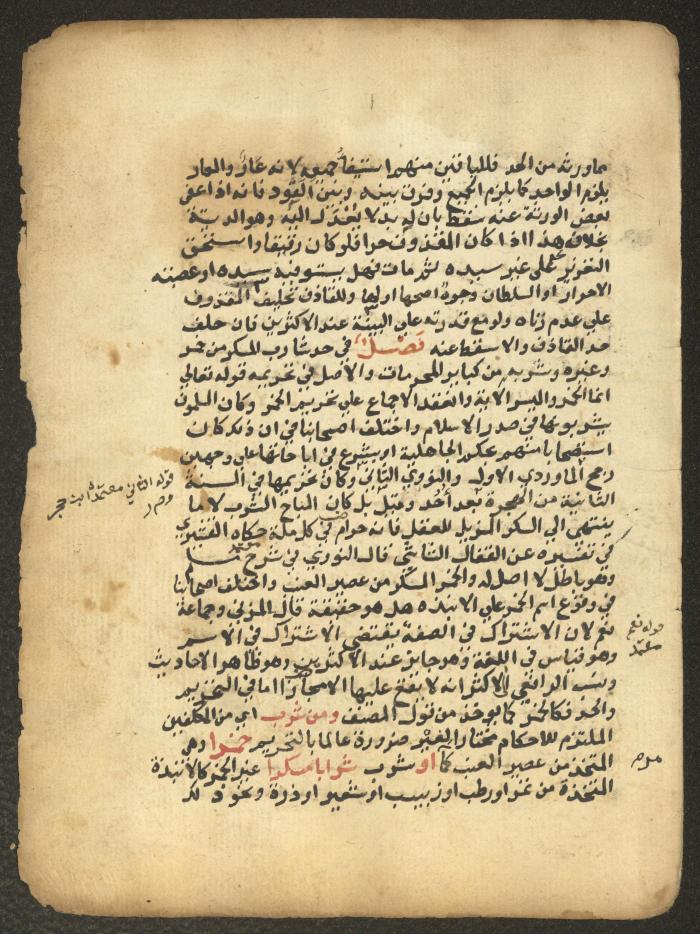 مما ورثه من الحد فللباقين منهم استيفاء جميعه لانه عار والعار
يلزم الواحد كما يلزم الجميع وفرق بينه وبين القود فانه اذا عفى
بعض الورثة عنه سقط بان له بدلا يعدل اليه وهو الدية
بخلاف هذا اذا كان المقذوف حرا فلو كان رقيقا واستحق
التعزير على غير سيده ثم مات فهل يستوفيه سيده او عصبته
الاحرار او السلطان وجوه اصحها اولها وللقاذف تحليف المقذوف
على عدم زناه ولو مع قدرته على البينة عند الاكثرين فان حلف
حد القاذف والا سقط عنه فصل في حد شارب المسكر من خمر
وغيره وشربه من كباير المحرمات والاصل في تحريمه قوله تعالى
انما الخمر والميسر الاية وانعقد الاجماع على تحريم الخمر وكان المسلمون
يشربونها في صدر الاسلام واختلف اصحابنا في ان ذلك كان
استصحابا منهم لحكم الجاهلية او بشرع في اباحتها على وجهين
رجح الماوردي الاول والنووي الثاني وكان تحريمها في السنة
الثانية من الهجرة بعد احد وقيل بل كان المباح الشرب لا ما
ينتهي الى السكر المزيل للعقل فانه حرام في كل ملة حكاه القشيري
في تفسيره عن القفال الشاشي قال النووي في شرح مسلم
وهو باطل لا اصل له والخمر المسكر من عصير العنب واختلف اصحابنا
في وقوع اسم الخمر على الانبذة هل هو حقيقة قال المزني وجماعة
نعم لان الاشتراك في الصفة يقتضي الاشتراك في الاسم
وهو قياس في اللغة وهو جايز عند الاكثرين وهو ظاهر الاحاديث
ونسب الرافعي الى الاكثر انه لا يقع عليها الا مجازا اما في التحريم
والحد فكالخمر كما يوخذ من قول المصنف ومن شرب اي من المكلفين
الملتزم للاحكام مختارا لغير ضرورة عالما بالتحريم خمرا وهي
المتخذ من عصير العنب كما او شرب شرابا مسكرا غير الخمر كالانبذة
المتخذة من تمر او رطب او زبيب او شعير او ذرة ونحو ذلك
قوله الثاني معتمد ابن حجر
وم ر
قوله نعم
معتمد